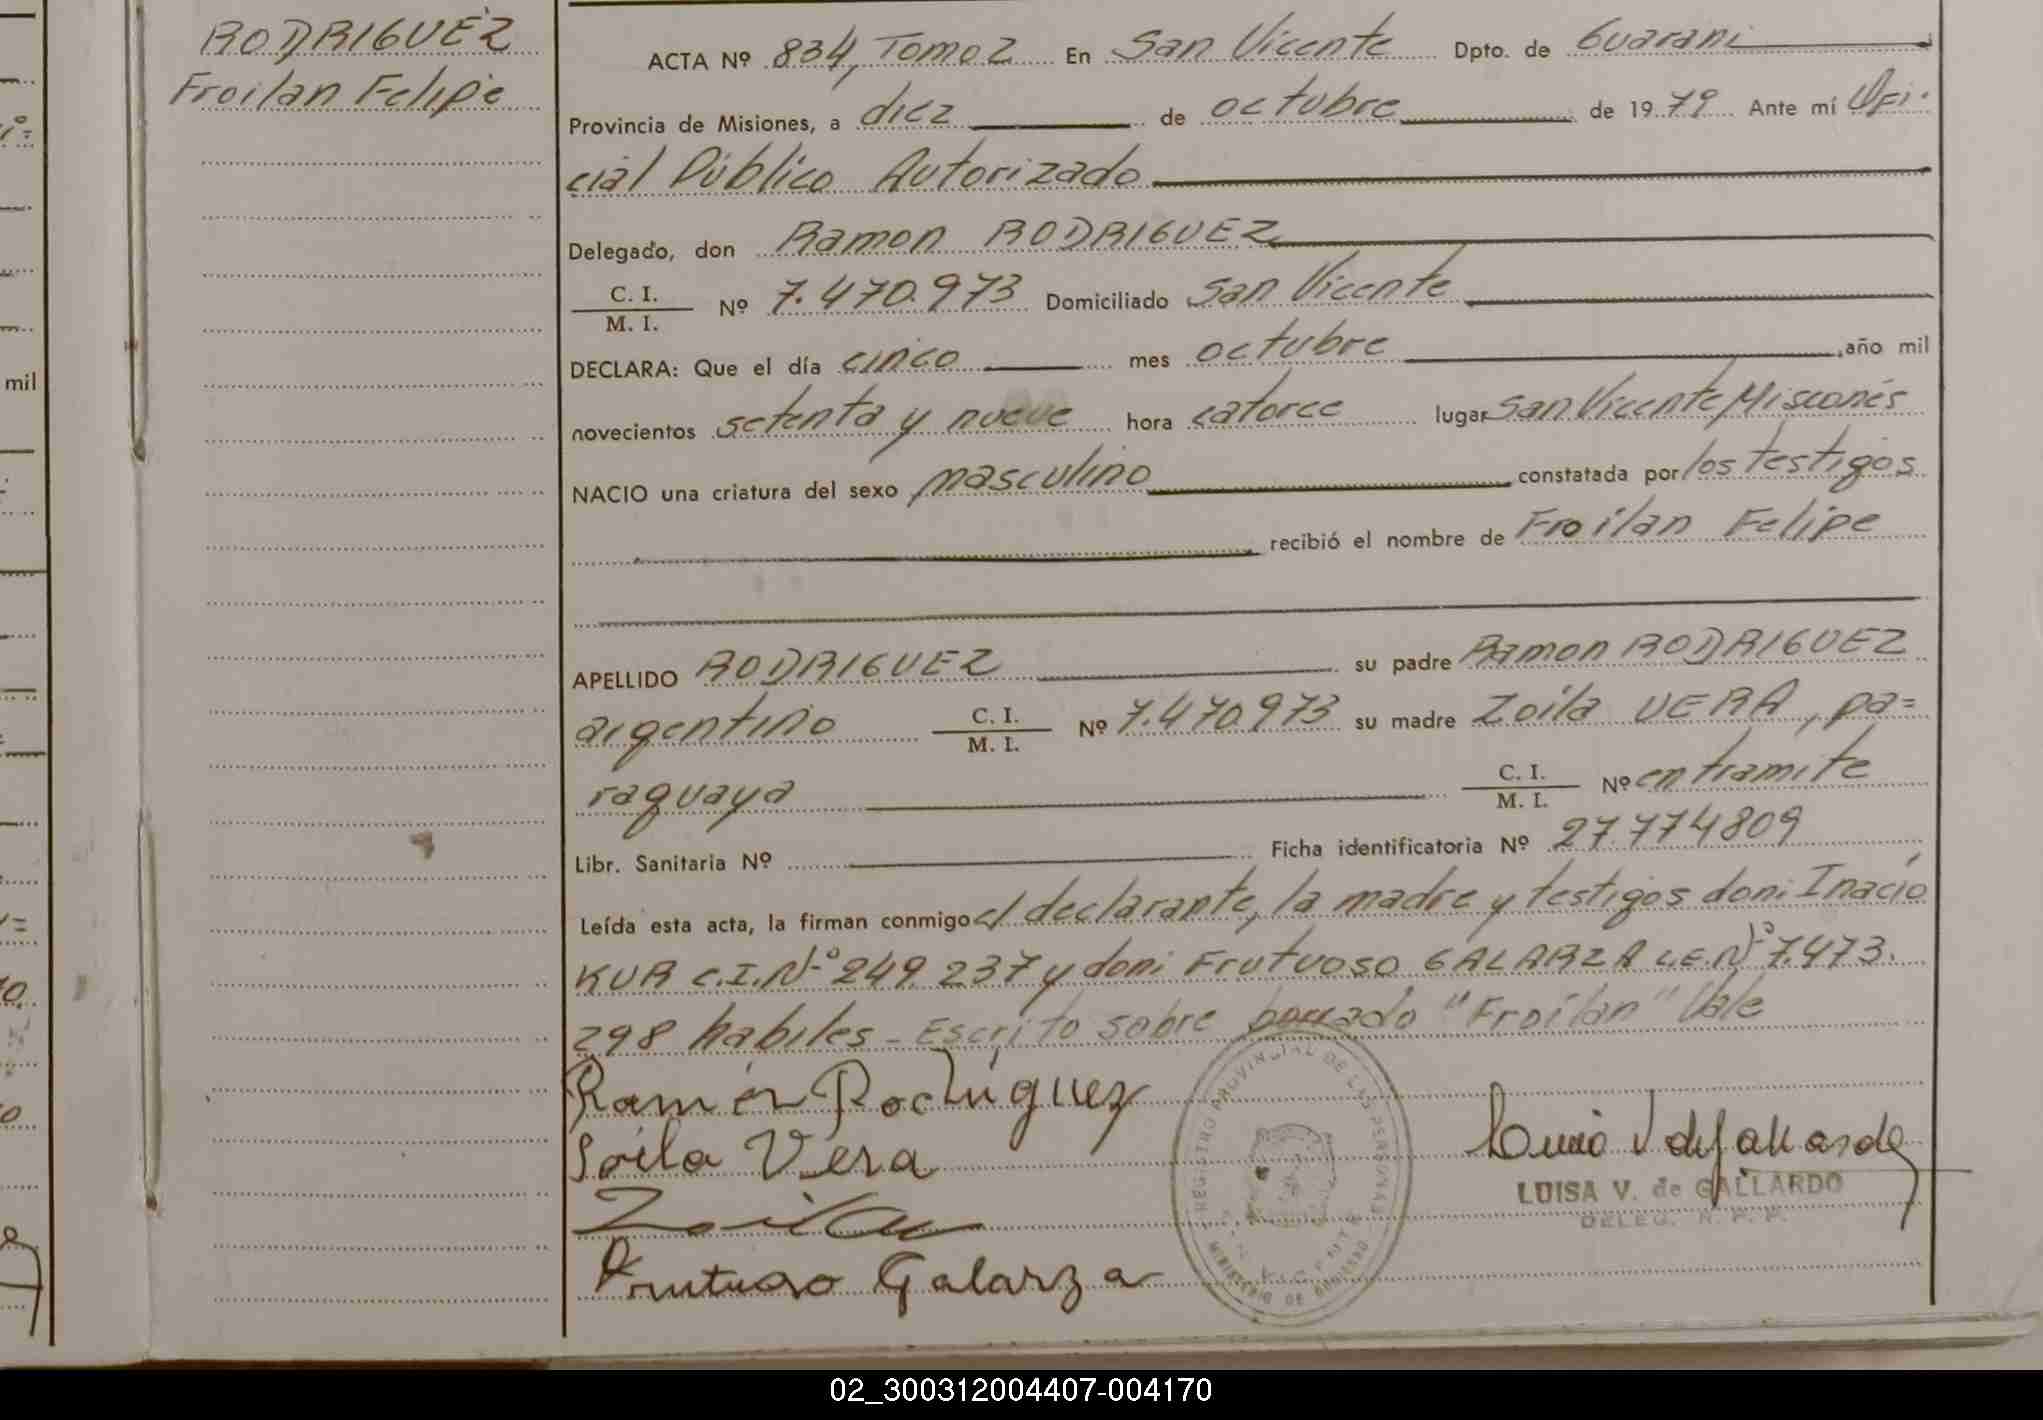 RODRIGUEZ
Froilan Felipe
ACTA Nº 834, Tomo 2 En San Vicente Dpto. de Guarani
Provincia de Misiones, a diez de octubre de 1979 Ante mí Ofi-
cial Público Autorizado
Delegado, don Ramon RODRIGUEZ
C. I.
M. I. Nº 7.470.973 Domiciliado San Vicente
DECLARA: Que el día cinco mes octubre, año mil
novecientos setenta y nueve hora catorce lugar San Vicente, Misiones
NACIO una criatura del sexo masculino constatada por los testigos
recibió el nombre de Froilan Felipe
APELLIDO RODRIGUEZ su padre Ramon RODRIGUEZ
argentino C. I. M. I. Nº 7.470.973 su madre Zoila VERA, pa=
raguaya C. I. M. I. Nº en tramite
Libr. Sanitaria Nº Ficha identificatoria Nº 27.774809
Leída esta acta, la firman conmigo el declarante, la madre y testigos don: Inacio
KUR C.I. Nº 249.237 y don: Frutuoso GALARZA L.E. Nº 7.473.
298 habiles - Escrito sobre borrado "Froilan" Vale
Ramón Rodríguez
Soila Vera
Frutuoso Galarza
REGISTRO PROVINCIAL DE LAS PERSONAS
MINISTERIO DE GOBIERNO
LUISA V. de GALLARDO
DELEG. R. P. P.
mil
02_300312004407-004170